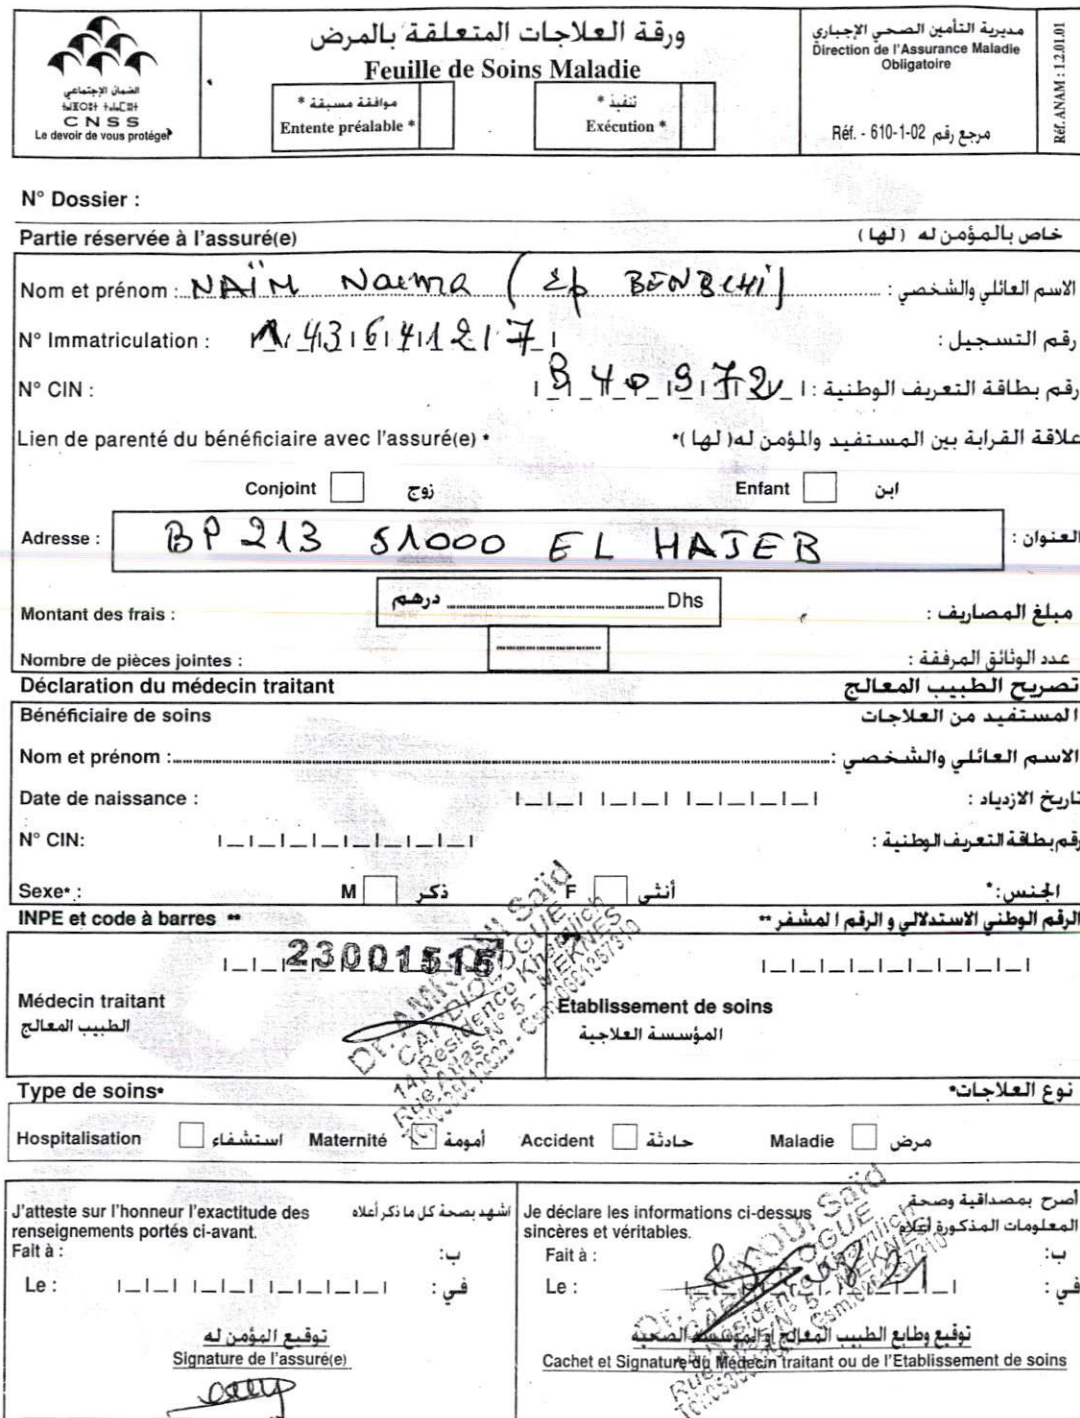 الضمان الإجتماعي
CNSS
Le devoir de vous protéger
ورقة العلاجات المتعلقة بالمرض
Feuille de Soins Maladie
موافقة مسبقة *
Entente préalable *
تنفيذ *
Exécution *
مديرية التأمين الصحي الإجباري
Direction de l'Assurance Maladie Obligatoire
Réf. - 610-1-02 مرجع رقم
Réf. ANAM : 1.2.01.01
N° Dossier :
Partie réservée à l'assuré(e) خاص بالمؤمن له (لها)
Nom et prénom : NAÏM Naima (ép BENBCHI) الاسم العائلي والشخصي :
N° Immatriculation : 143641217 رقم التسجيل :
N° CIN : B40972 رقم بطاقة التعريف الوطنية :
Lien de parenté du bénéficiaire avec l'assuré(e) * علاقة القرابة بين المستفيد والمؤمن له( لها )*
Conjoint زوج Enfant ابن
Adresse : BP 213 51000 EL HAJEB العنوان :
Montant des frais : درهم Dhs مبلغ المصاريف :
Nombre de pièces jointes : عدد الوثائق المرفقة :
Déclaration du médecin traitant تصريح الطبيب المعالج
Bénéficiaire de soins المستفيد من العلاجات
Nom et prénom : الاسم العائلي والشخصي :
Date de naissance : تاريخ الازدياد :
N° CIN: رقم بطاقة التعريف الوطنية :
Sexe* : M ذكر F أنثى الجنس :*
INPE et code à barres ** الرقم الوطني الاستدلالي و الرقم المشفر **
23001515
Médecin traitant
الطبيب المعالج
Etablissement de soins
المؤسسة العلاجية
Dr. AMRAOUI Saïd
CARDIOLOGUE
14, Résidence Khamlich
Rue Atlas N° 5 - MEKNES
Type de soins* نوع العلاجات*
Hospitalisation استشفاء Maternité أمومة Accident حادثة Maladie مرض
J'atteste sur l'honneur l'exactitude des renseignements portés ci-avant.
اشهد بصحة كل ما ذكر أعلاه
Fait à : ب:
Le : في :
توقيع المؤمن له
Signature de l'assuré(e)
Je déclare les informations ci-dessus sincères et véritables.
أصرح بمصداقية وصحة
المعلومات المذكورة أعلاه
Fait à : ب:
Le : في :
Dr. AMRAOUI Saïd
CARDIOLOGUE
توقيع وطابع الطبيب المعالج أو المؤسسة الصحية
Cachet et Signature du Médecin traitant ou de l'Etablissement de soins